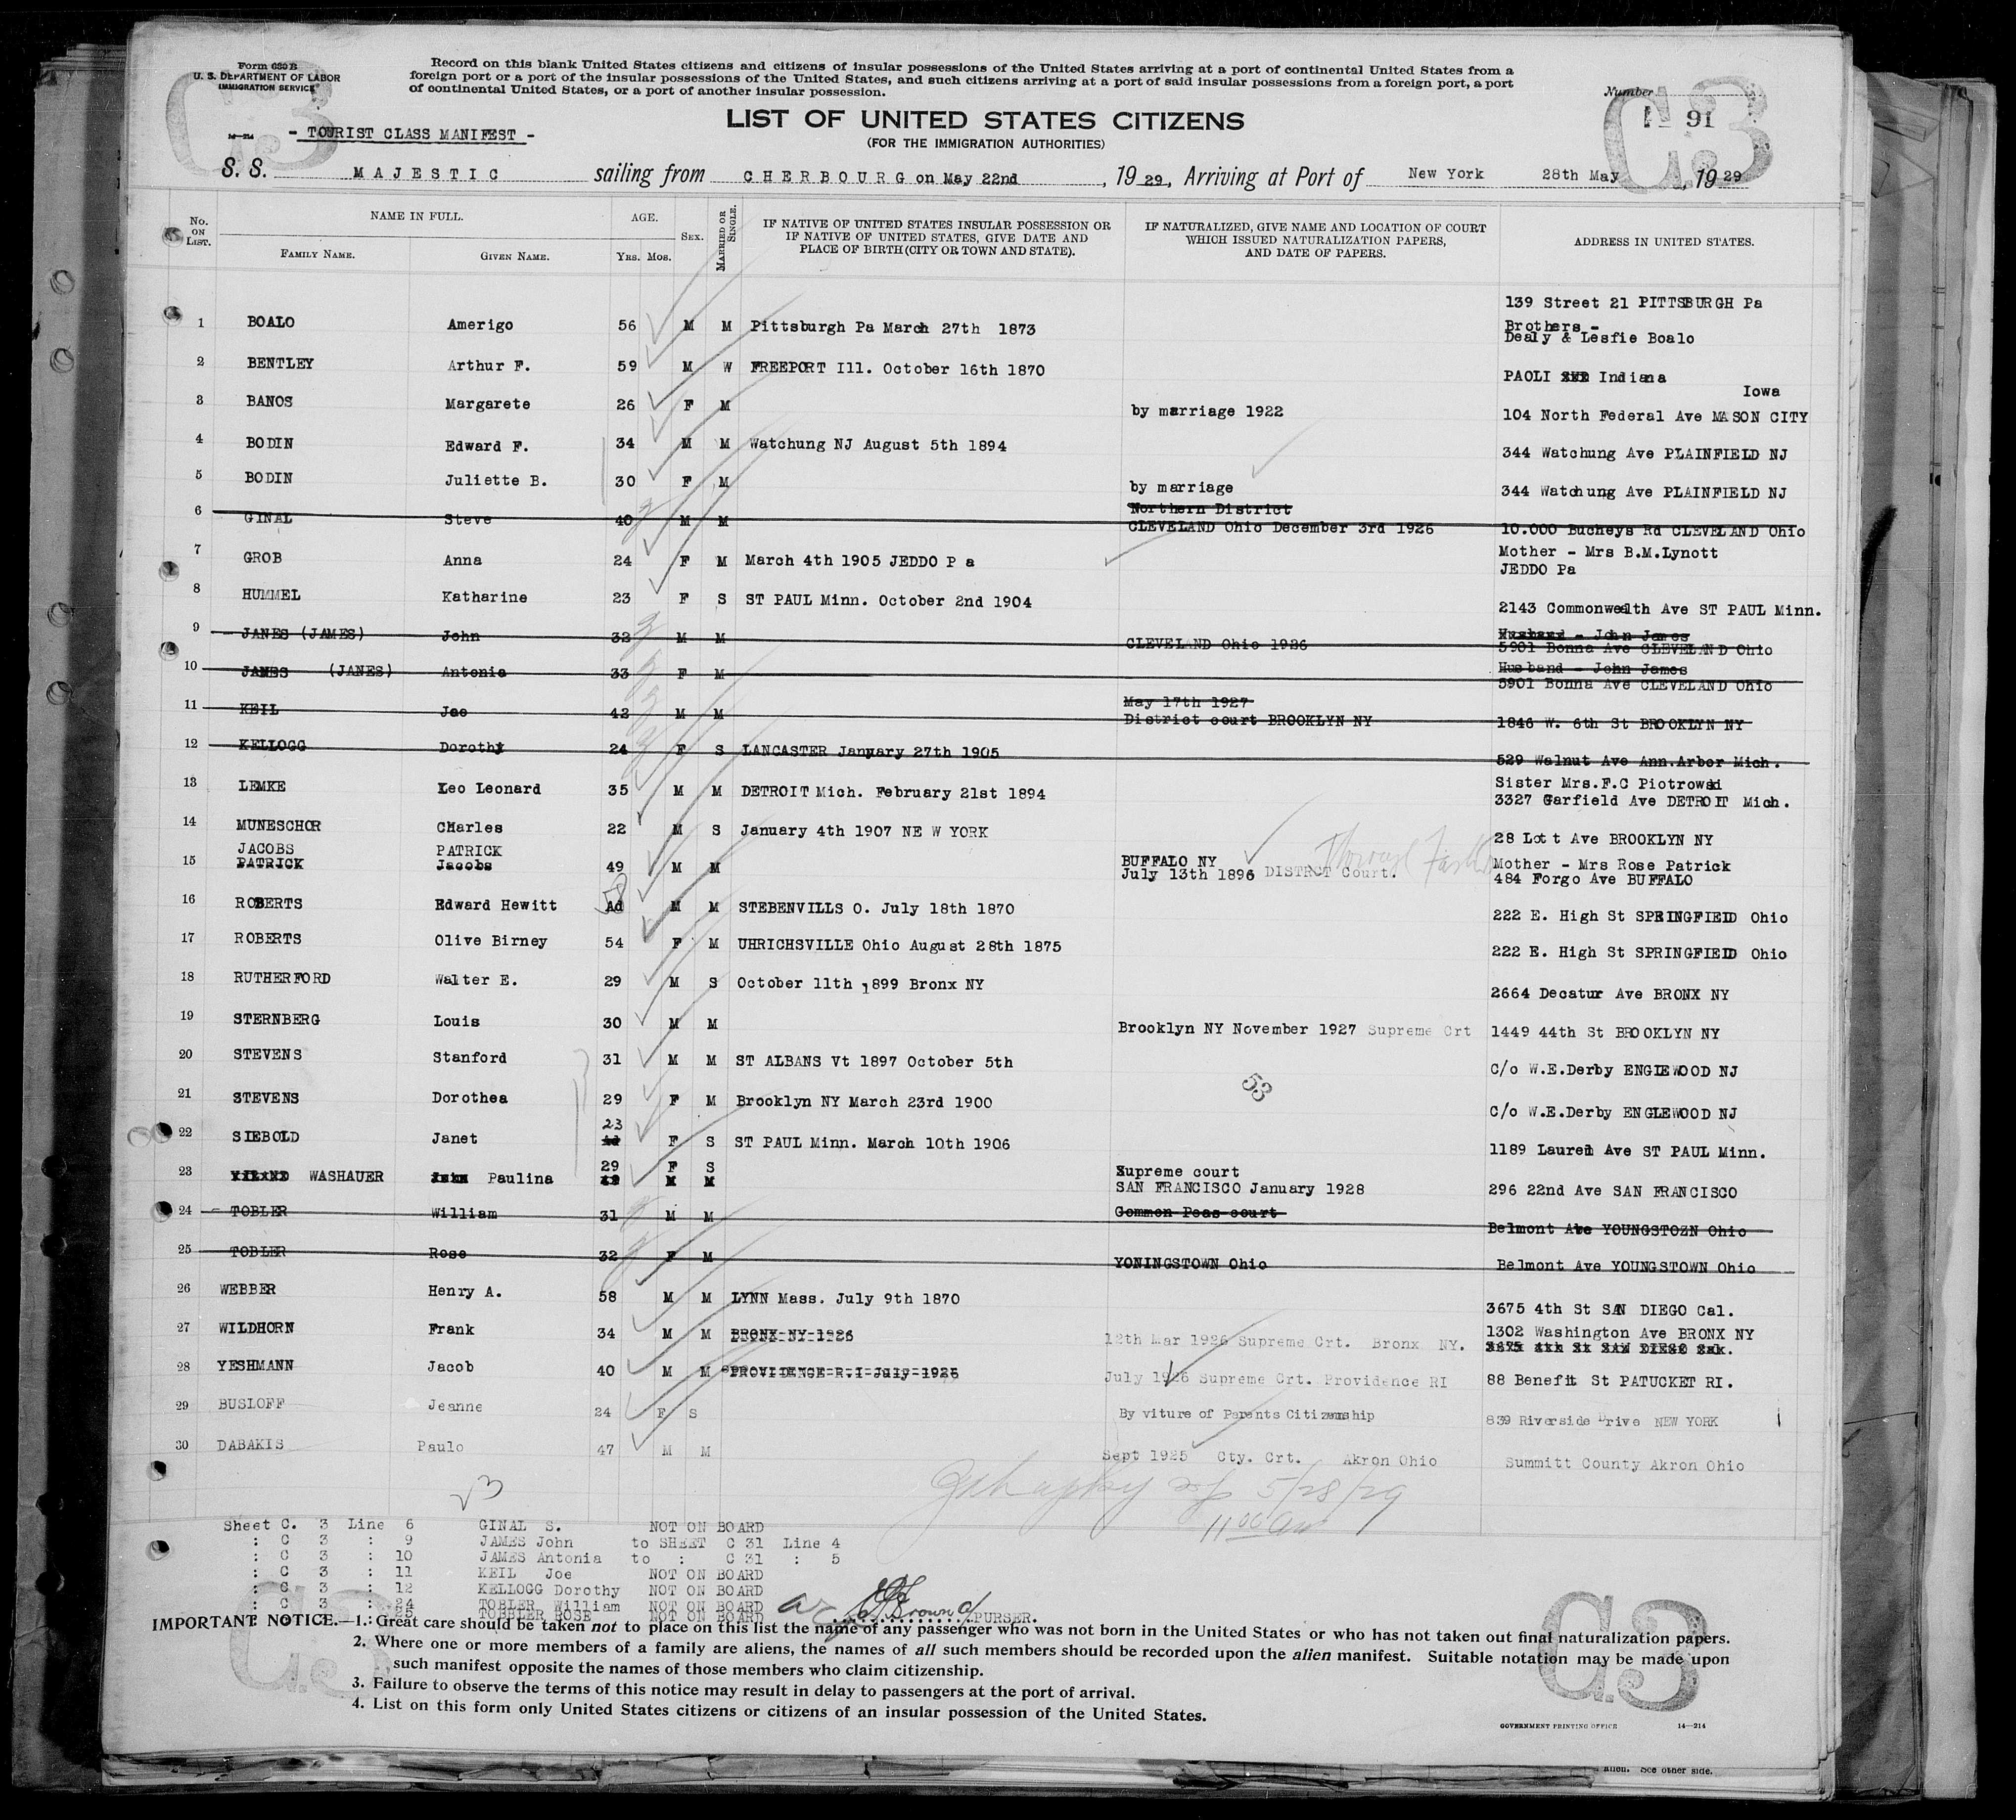 Form 630 B
U. S. DEPARTMENT OF LABOR
IMMIGRATION SERVICE
Record on this blank United States citizens and citizens of insular possessions of the United States arriving at a port of continental United States from a
foreign port or a port of the insular possessions of the United States, and such citizens arriving at a port of said insular possessions from a foreign port, a port
of continental United States, or a port of another insular possession.
Number
91
C3
C3
14-214
- TOURIST CLASS MANIFEST -
LIST OF UNITED STATES CITIZENS
(FOR THE IMMIGRATION AUTHORITIES)
S. S. MAJESTIC sailing from CHERBOURG on May 22nd, 1929, Arriving at Port of New York 28th May, 1929
No. ON LIST. NAME IN FULL. AGE. SEX. MARRIED OR SINGLE. IF NATIVE OF UNITED STATES INSULAR POSSESSION OR IF NATIVE OF UNITED STATES, GIVE DATE AND PLACE OF BIRTH (CITY OR TOWN AND STATE). IF NATURALIZED, GIVE NAME AND LOCATION OF COURT WHICH ISSUED NATURALIZATION PAPERS, AND DATE OF PAPERS. ADDRESS IN UNITED STATES.
FAMILY NAME. GIVEN NAME. YRS. MOS.
139 Street 21 PITTSBURGH Pa
1 BOALO Amerigo 56 M M Pittsburgh Pa March 27th 1873 Brothers -
Dealy & Lesfie Boalo
2 BENTLEY Arthur F. 59 M W FREEPORT Ill. October 16th 1870
PAOLI Indiana
Iowa
3 BANOS Margarete 26 F M by marriage 1922 104 North Federal Ave MASON CITY
4 BODIN Edward F. 34 M M Watchung NJ August 5th 1894 344 Watchung Ave PLAINFIELD NJ
5 BODIN Juliette B. 30 F M by marriage 344 Watchung Ave PLAINFIELD NJ
Northern District
6 GINAL Steve 40 M M CLEVELAND Ohio December 3rd 1926 10.000 Bucheys Rd CLEVELAND Ohio
7 GROB Anna 24 F M March 4th 1905 JEDDO P a Mother - Mrs B.M.Lynott
JEDDO Pa
8 HUMMEL Katharine 23 F S ST PAUL Minn. October 2nd 1904 2143 Commonwealth Ave ST PAUL Minn.
Husband - John James
9 JANES (JAMES) John 32 M M CLEVELAND Ohio 1926 5901 Bonna Ave CLEVELAND Ohio
Husband - John James
10 JAMES (JANES) Antonia 33 F M 5901 Bonna Ave CLEVELAND Ohio
May 17th 1927
11 KEIL Joe 42 M M District court BROOKLYN NY 1846 W. 6th St BROOKLYN NY
12 KELLOGG Dorothy 24 F S LANCASTER January 27th 1905 529 Walnut Ave Ann.Arbor Mich.
13 LEMKE Leo Leonard 35 M M DETROIT Mich. February 21st 1894 Sister Mrs.F.C Piotrowski
3327 Garfield Ave DETROIT Mich.
14 MUNESCHOR Charles 22 M S January 4th 1907 NE W YORK 28 Lott Ave BROOKLYN NY
JACOBS PATRICK
15 PATRICK Jacobs 49 M M BUFFALO NY Mother - Mrs Rose Patrick
July 13th 1896 DISTRCT Court. 484 Forgo Ave BUFFALO
58
16 ROBERTS Edward Hewitt Ad M M STEBENVILLS O. July 18th 1870 222 E. High St SPRINGFIEID Ohio
17 ROBERTS Olive Birney 54 F M UHRICHSVILLE Ohio August 28th 1875 222 E. High St SPRINGFIEID Ohio
18 RUTHERFORD Walter E. 29 M S October 11th 1899 Bronx NY 2664 Decatur Ave BRONX NY
19 STERNBERG Louis 30 M M Brooklyn NY November 1927 Supreme Crt 1449 44th St BROOKLYN NY
20 STEVENS Stanford 31 M M ST ALBANS Vt 1897 October 5th C/o W.E.Derby ENGLEWOOD NJ
53
21 STEVENS Dorothea 29 F M Brooklyn NY March 23rd 1900 C/o W.E.Derby ENGLEWOOD NJ
23
22 SIEBOLD Janet F S ST PAUL Minn. March 10th 1906 1189 Laurel Ave ST PAUL Minn.
29 F S Supreme court
23 WASHAUER Paulina M M SAN FRANCISCO January 1928 296 22nd Ave SAN FRANCISCO
24 TOBLER William 31 M M Common Peas court Belmont Ave YOUNGSTOZN Ohio
25 TOBLER Rose 32 F M YONINGSTOWN Ohio Belmont Ave YOUNGSTOWN Ohio
26 WEBBER Henry A. 58 M M LYNN Mass. July 9th 1870 3675 4th St SAN DIEGO Cal.
27 WILDHORN Frank 34 M M BRONX NY 1926 12th Mar 1926 Supreme Crt. Bronx NY. 1302 Washington Ave BRONX NY
3675 4th St SAN DIEGO Cal.
28 YESHMANN Jacob 40 M M PROVIDENCE R.I July 1925 July 1926 Supreme Crt. Providence RI 88 Benefit St PATUCKET RI.
29 BUSLOFF Jeanne 24 F S By viture of Parents Citizenship 839 Riverside Drive NEW YORK
30 DABAKIS Paulo 47 M M Sept 1925 Cty. Crt. Akron Ohio Summitt County Akron Ohio
5/28/29
11 00 am
Sheet C. 3 Line 6 GINAL S. NOT ON BOARD
: C 3 : 9 JAMES John to SHEET C 31 Line 4
: C 3 : 10 JAMES Antonia to : C 31 : 5
: C 3 : 11 KEIL Joe NOT ON BOARD
: C 3 : 12 KELLOGG Dorothy NOT ON BOARD
: C 3 : 24 TOBLER William NOT ON BOARD
: C 3 : 25 TOBBLER ROSE NOT ON BOARD
Brown PURSER.
IMPORTANT NOTICE.—1. Great care should be taken not to place on this list the name of any passenger who was not born in the United States or who has not taken out final naturalization papers.
2. Where one or more members of a family are aliens, the names of all such members should be recorded upon the alien manifest. Suitable notation may be made upon
such manifest opposite the names of those members who claim citizenship.
3. Failure to observe the terms of this notice may result in delay to passengers at the port of arrival.
4. List on this form only United States citizens or citizens of an insular possession of the United States.
C3
C3
GOVERNMENT PRINTING OFFICE 14—214
alien. See other side.